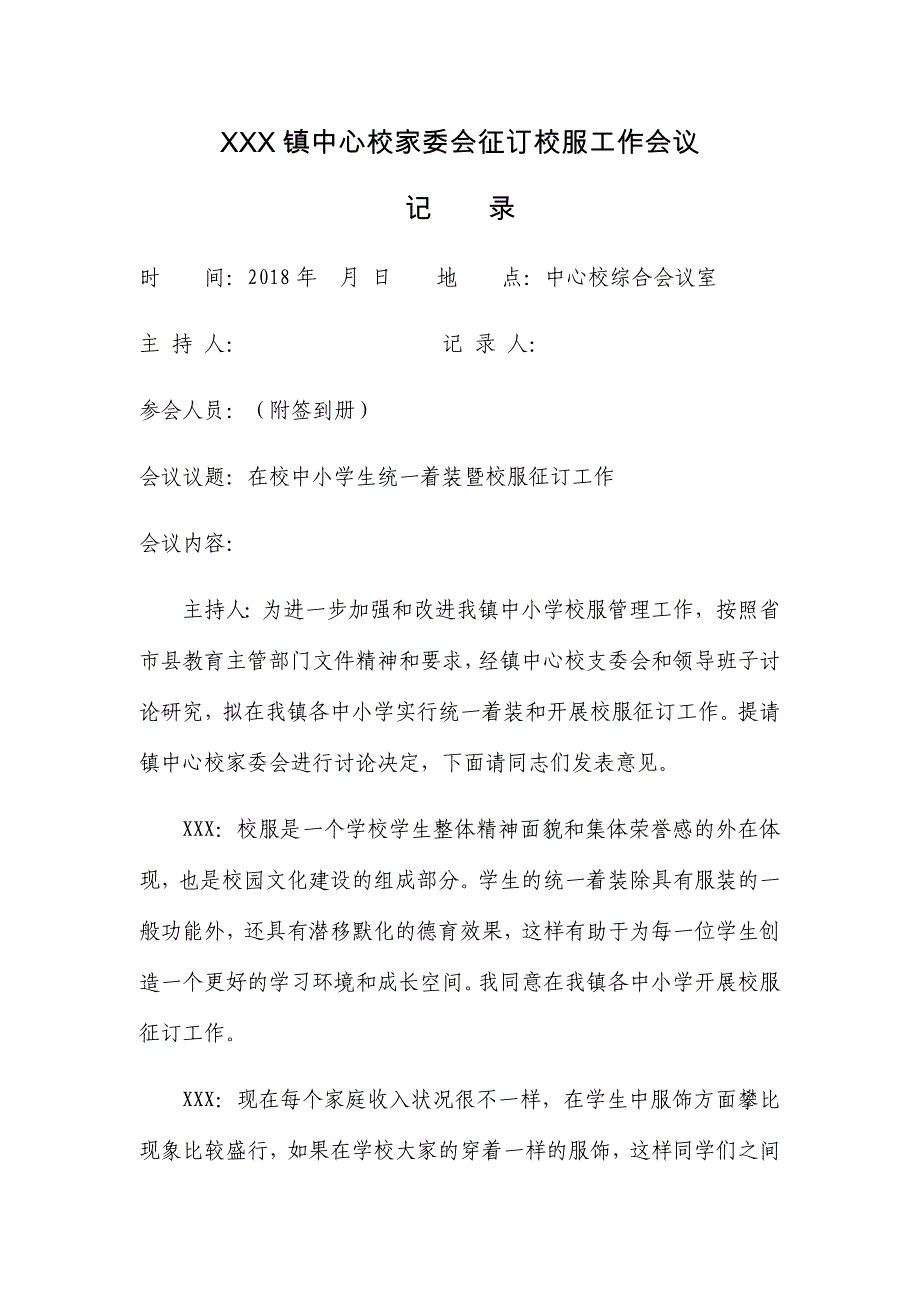 XXX 镇中心校家委会征订校服工作会议
记 录
时 间：2018 年 月 日 地 点：中心校综合会议室
主 持 人： 记 录 人：
参会人员：（附签到册）
会议议题：在校中小学生统一着装暨校服征订工作
会议内容：
主持人：为进一步加强和改进我镇中小学校服管理工作，按照省
市县教育主管部门文件精神和要求，经镇中心校支委会和领导班子讨
论研究，拟在我镇各中小学实行统一着装和开展校服征订工作。提请
镇中心校家委会进行讨论决定，下面请同志们发表意见。
XXX：校服是一个学校学生整体精神面貌和集体荣誉感的外在体
现，也是校园文化建设的组成部分。学生的统一着装除具有服装的一
般功能外，还具有潜移默化的德育效果，这样有助于为每一位学生创
造一个更好的学习环境和成长空间。我同意在我镇各中小学开展校服
征订工作。
XXX：现在每个家庭收入状况很不一样，在学生中服饰方面攀比
现象比较盛行，如果在学校大家的穿着一样的服饰，这样同学们之间